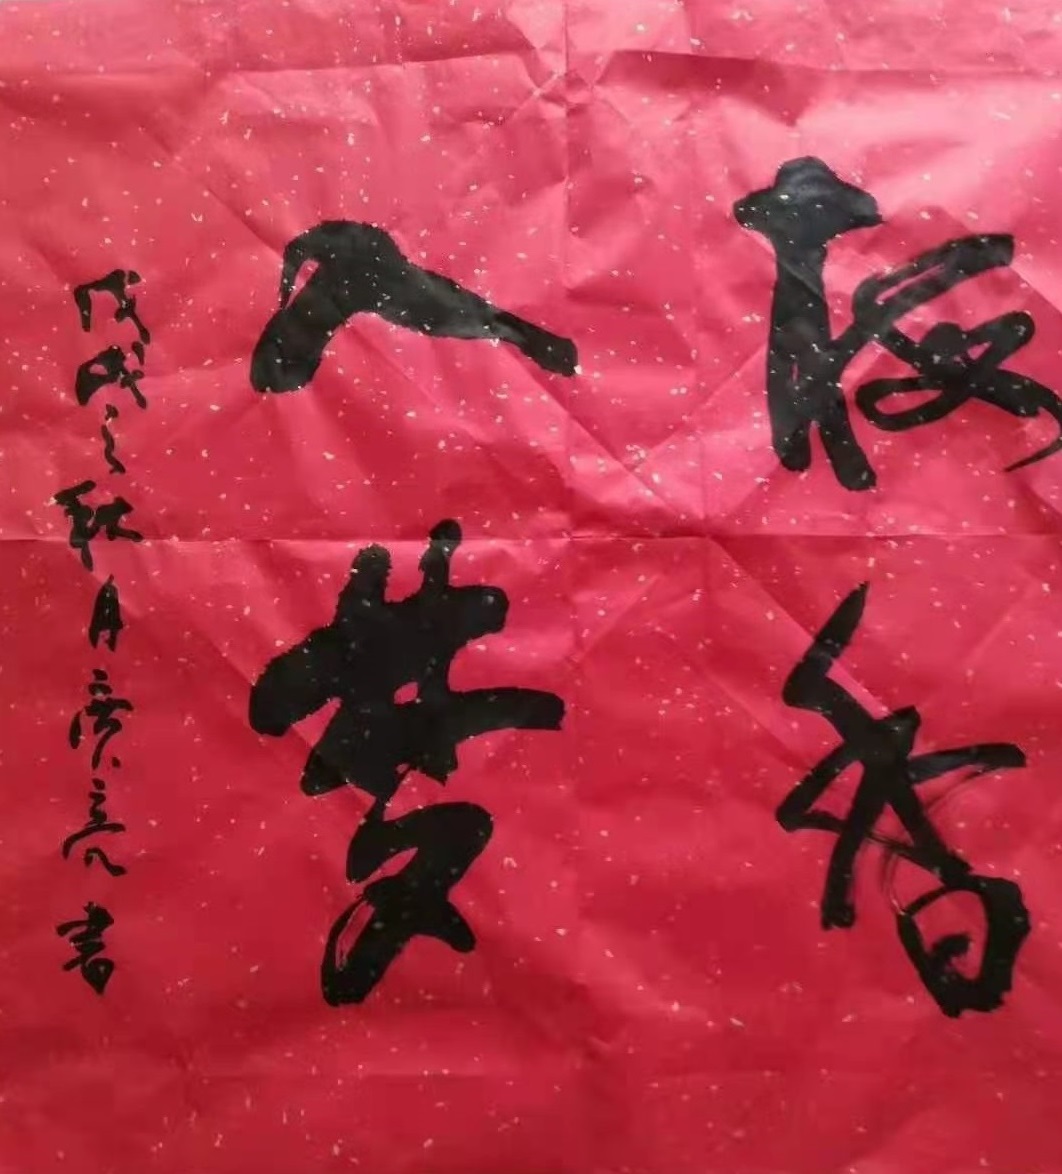 梅香
入梦
戊戌之秋月 亮書